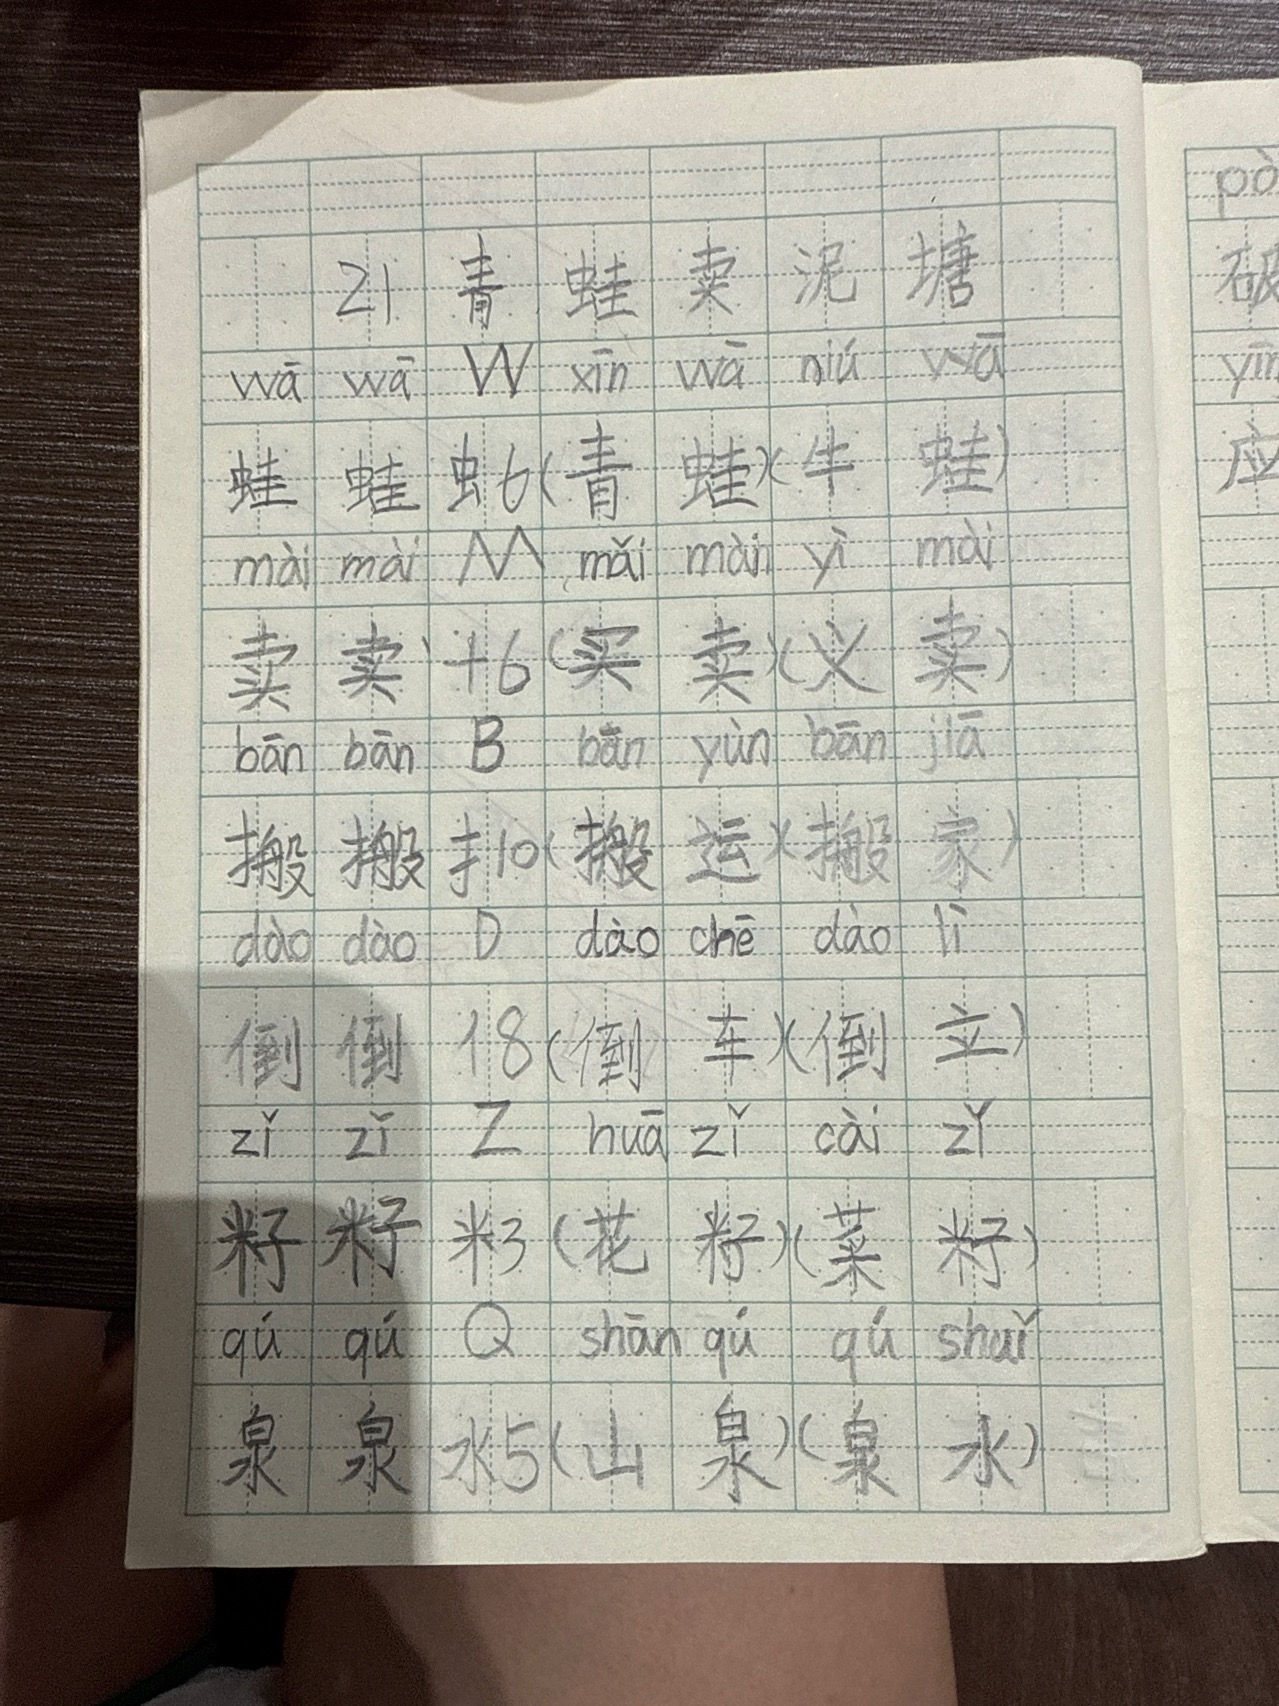 21 青蛙卖泥塘
wā wā W xīn wā niú wā
蛙 蛙 虫6(青蛙)(牛蛙)
mài mài M mǎi mài yì mài
卖 卖 十6(买卖)(义卖)
bān bān B bān yùn bān jiā
搬 搬 扌10(搬运)(搬家)
dào dào D dào chē dào lì
倒 倒 亻8(倒车)(倒立)
zǐ zǐ Z huā zǐ cài zǐ
籽 籽 米3(花籽)(菜籽)
qú qú Q shān qú qú shuǐ
泉 泉 水5(山泉)(泉水)
pò
破
yīn
应